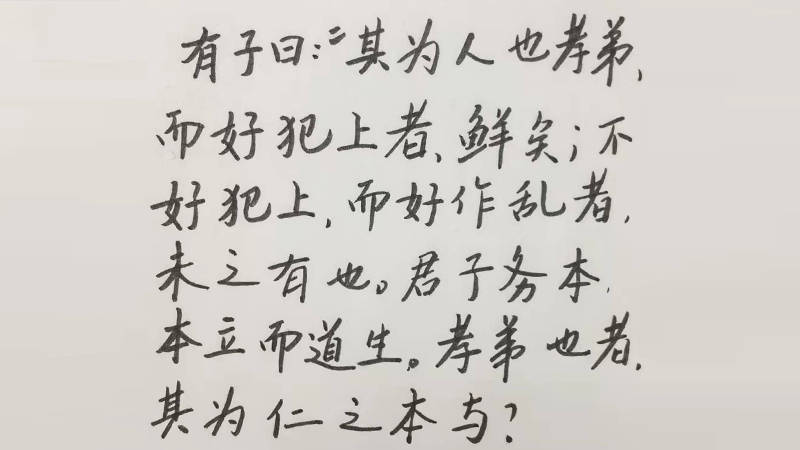 有子曰:“其为人也孝弟,
而好犯上者,鲜矣;不
好犯上,而好作乱者,
未之有也。君子务本,
本立而道生。孝弟也者,
其为仁之本与?